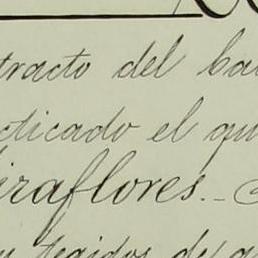 tracto del ba
cticado el qu
iraflores.
tegidos de